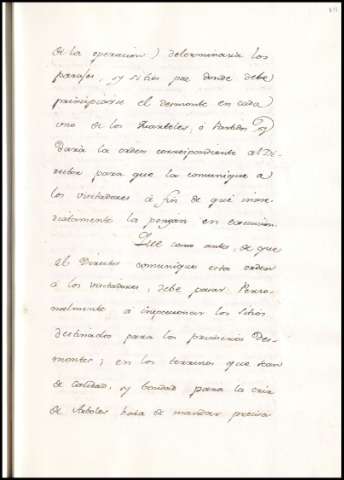 de la operacion) determinaria los
parajes, y sitios por donde debe
principiarse el desmonte en cada
uno de los Quarteles, ó Partidos y
Daria la orden correspondiente al Di-
rector para que la comunique a
los visitadores á fin de que inme-
diatamente la pongan en execucion.
Que como antes, de que
el Director comunique esta orden
á los visitadores, debe pasar Perso-
nalmente a inspeccionar los sitios
destinados para los primeros Des-
montes; en los terrenos que sean
de calidad, y bondad para la cria
de Arboles hará de mandar